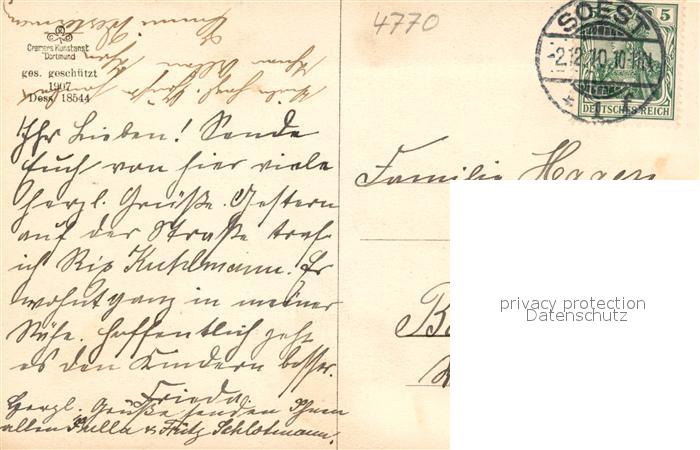 4770
Cramers Kunstanst
Dortmund
ges. geschützt
1907
Dess 18544
SOEST
-2.12.10.10-11N
* 1 f
5
DEUTSCHES REICH
Ihr Lieben! Sende
Euch von hier viele
herzl. Grüße. Gestern
auf der Straße traf
ich Rix Kuhlmann. Er
wohnt ganz in meiner
Nähe. Hoffentlich geht
es den Kindern besser.
Frieda.
Herzl. Grüße senden Ihnen
allen Bella u. Fritz Schlotmann.
Familie Hagen
privacy protection
Datenschutz